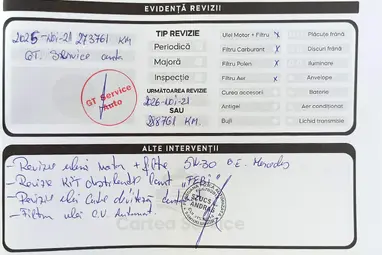 EVIDENȚĂ REVIZII
2025-NOI-21 273761 KM
GT. Service auto
GT Service
Auto
TIP REVIZIE
Periodică
Majoră
Inspecție
URMĂTOAREA REVIZIE
2026-NOI-21
SAU
288761 KM.
Ulei Motor + Filtru x
Filtru Carburant x
Filtru Polen x
Filtru Aer x
Curea accesorii
Antigel
Bujii
Plăcuțe frână
Discuri frână
Iluminare
Anvelope
Baterie
Aer condiționat
Lichid transmisie
ALTE INTERVENȚII
- Revizie ulei motor + filtre 5W-30 O.E. Mercedes
- Revizie KIT distribuție lanț "FEBI"
- Revizie ulei cutie viteză
- Filtru ulei C.V. Automat.
SZUCS
ANDRAS
Cartea Service